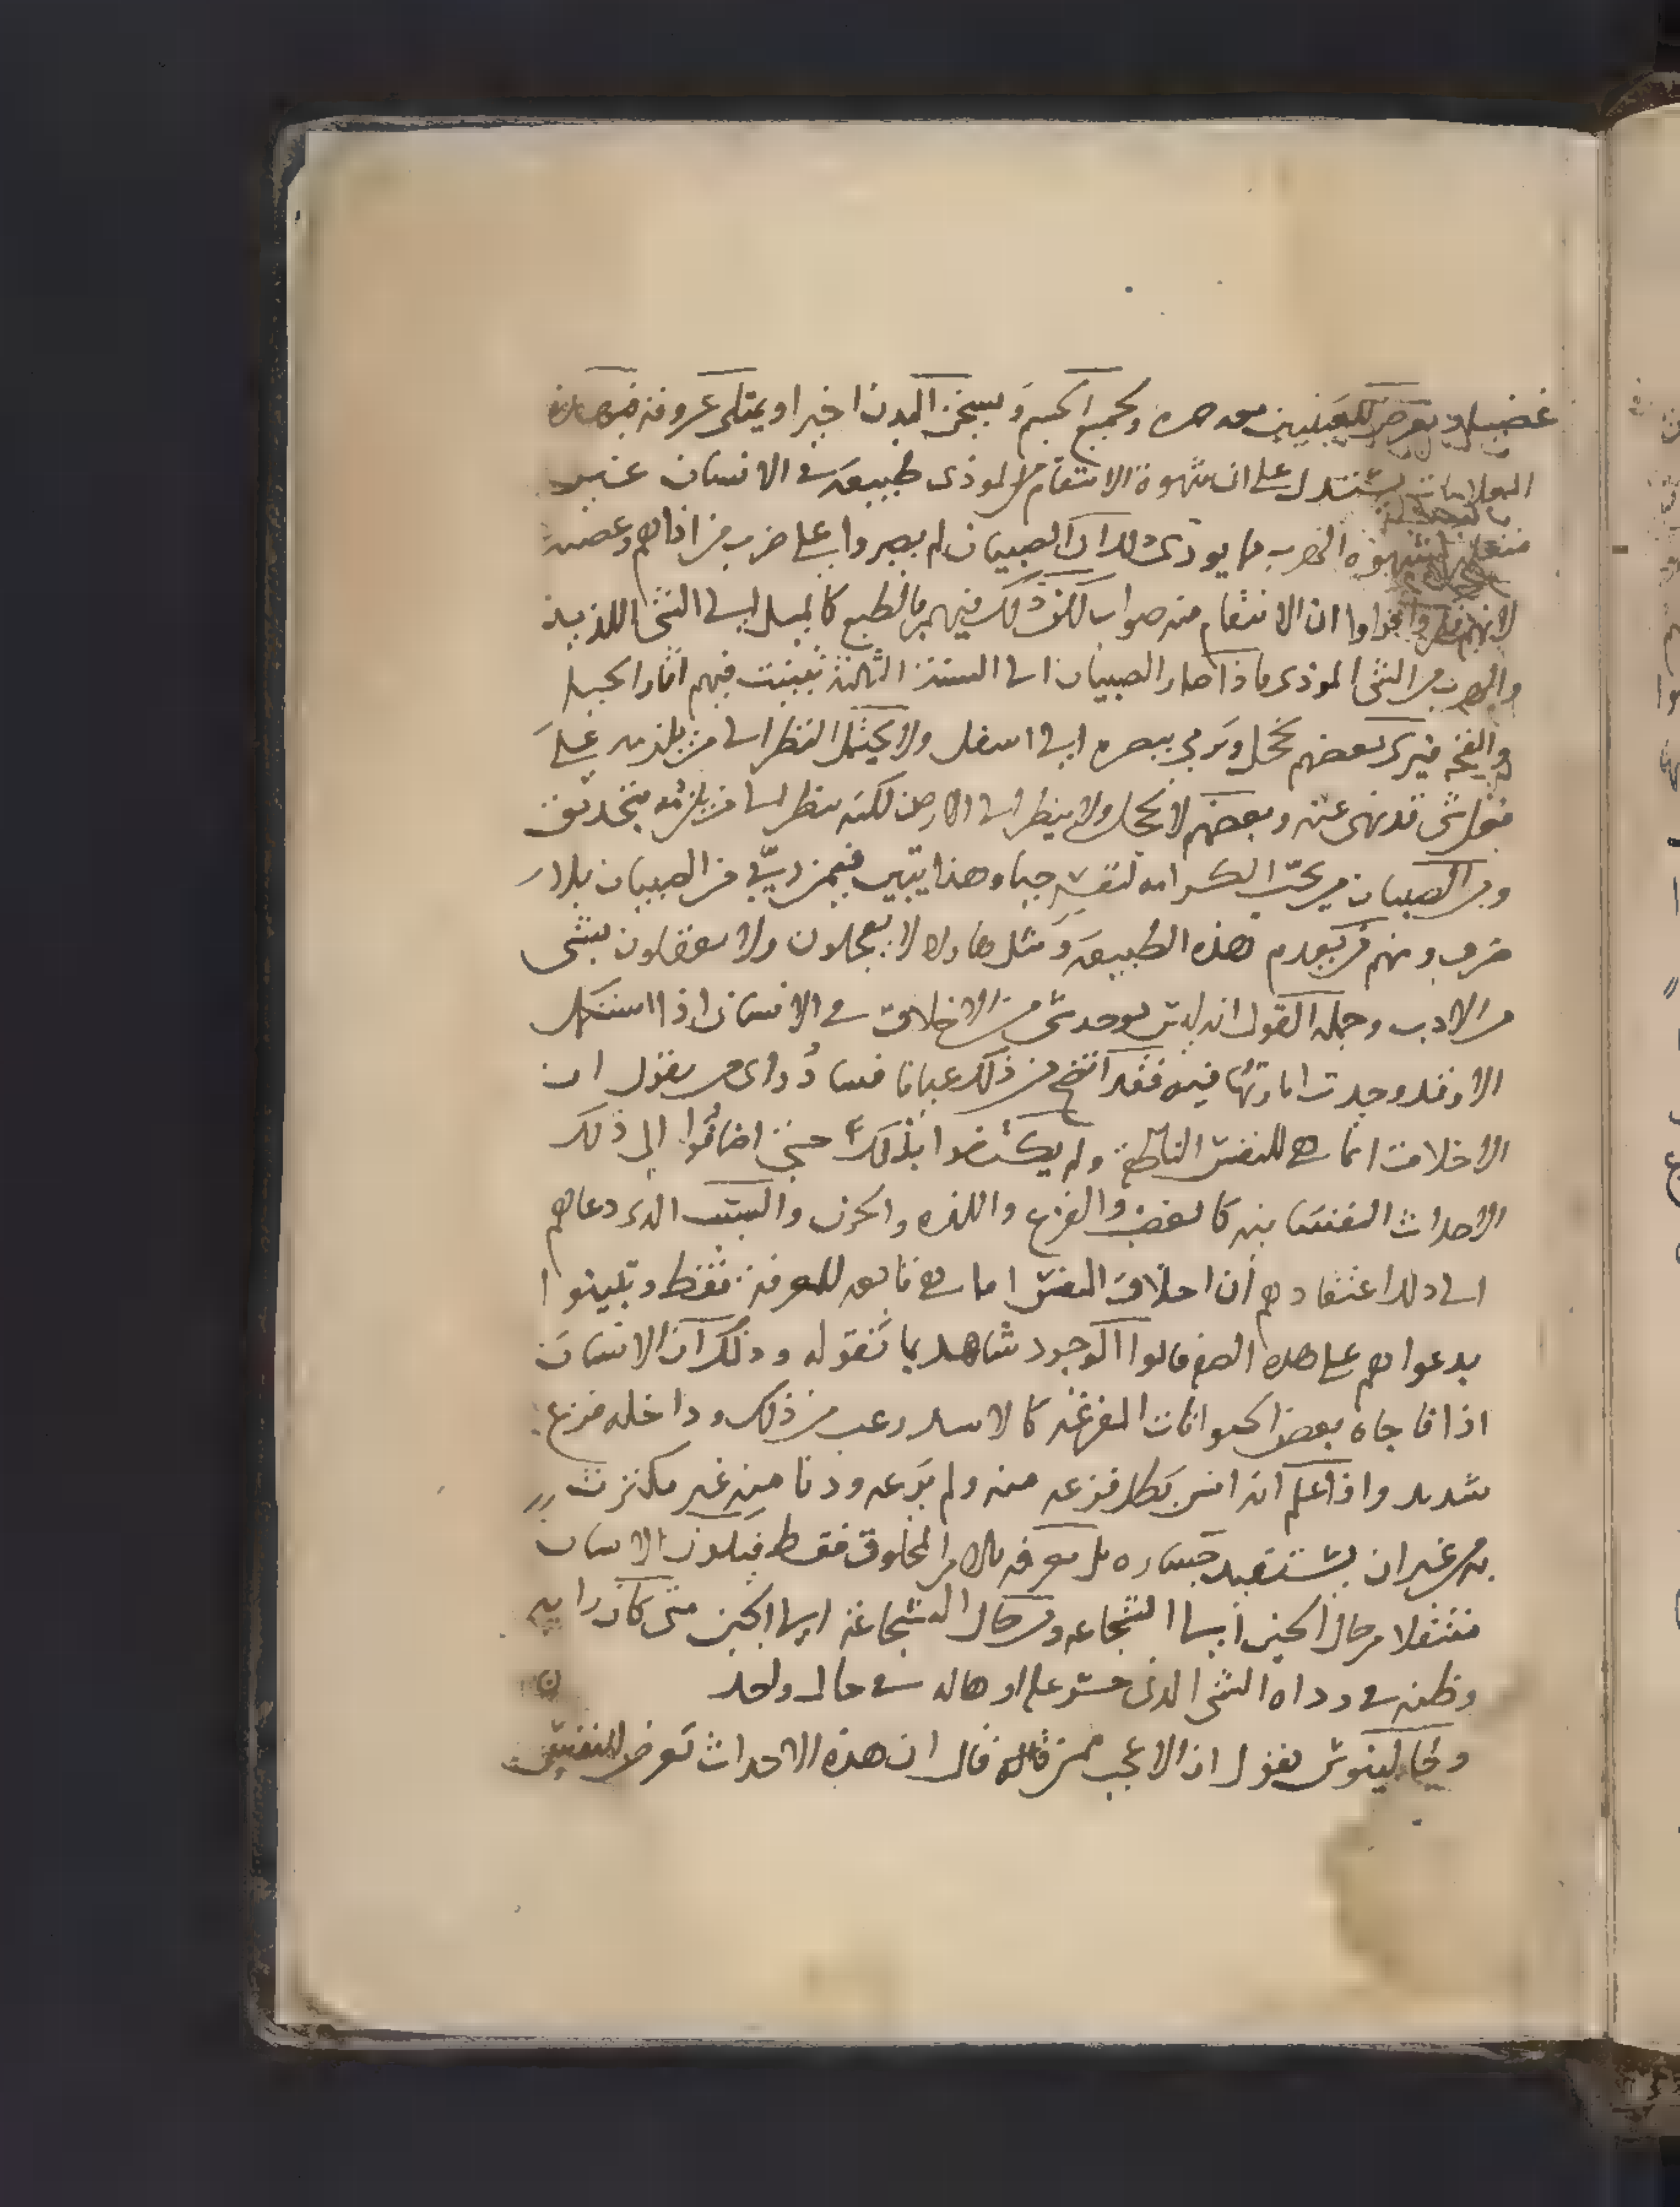 غضب ويعرض للعينين معه حمره ولجميع الجسم ويسخن البدن اخيرا ويمتلى عروقه فبهذه
العلامات يستدل على ان شهوة الانتقام من الموذى طبيعة فى الانسان غير
منتقله كشهوة الهرب مما يوذى وذلك ان الصبيان لم يصيروا على ضرب من اذاهم وعضه
لانهم ان الانتقام منه صواب لكن ذلك فيهم بالطبع كالميل الى الشى اللذيذ
والهرب من الشى الموذى فاذا صار الصبيان الى السنة الثالثة تبينت فيهم اثار الحيا
والقحة فيرى بعضهم يخجل ويرمى ببصره الى اسفل ولا يحتمل النظر الى من يلومه على
فعل شى قد نهى عنه وبعضهم لا يخجل ولا ينظر الى الارض لكنه ينظر الى من يلومه بتحديق
ومن الصبيان من يحب الكرامه لنفسه حبا وهذا يتبين فيمن ربى من الصبيان بلا
ضرب ومنهم من يعدم هذه الطبيعة ومثل هاولا لا يخجلون ولا يعقلون بشى
من الادب وجمله القول انه ليس يوجد شى من الاخلاق فى الانسان اذا استكمل
الا وقد وجدت اماراتها فيه فقد اتضح من ذلك عيانا فساد راى من يقول ان
الاخلاق انما هى للنفس الناطقة ولم يكتفوا بذلك حتى اضافوا الى ذلك
الاحداث النفسانيه كالغضب والفزع واللذه والحزن والسبب الدى دعاهم
الى ذلك اعتقادهم ان اخلاق النفس انما هى تابعه للمعرفة فقط وتبينوا
بدعواهم على هذه الصفه قالوا الوجود شاهد بما نقوله وذلك ان الانسان
اذا فاجاه بعض الحيوانات المفزعه كالاسد رعب من ذلك وداخله فزع
شديد واذا علم انه انس بطل فزعه منه ولم يرعه ودنا منه غير مكترث
به من غير ان يستفيد جساره بل معرفه بالامر المخلوق فقط فيكون الانسان
منتقلا من حال الجبن الى الشجاعه ومن حال الشجاعة الى الجبن متى كان رايه
وظنه فى رداه الشى الذى هو على او حاله فى حال واحد
وجالينوس يقول ان الاعجب ممن قال ان هذه الاحداث تعرض للنفس